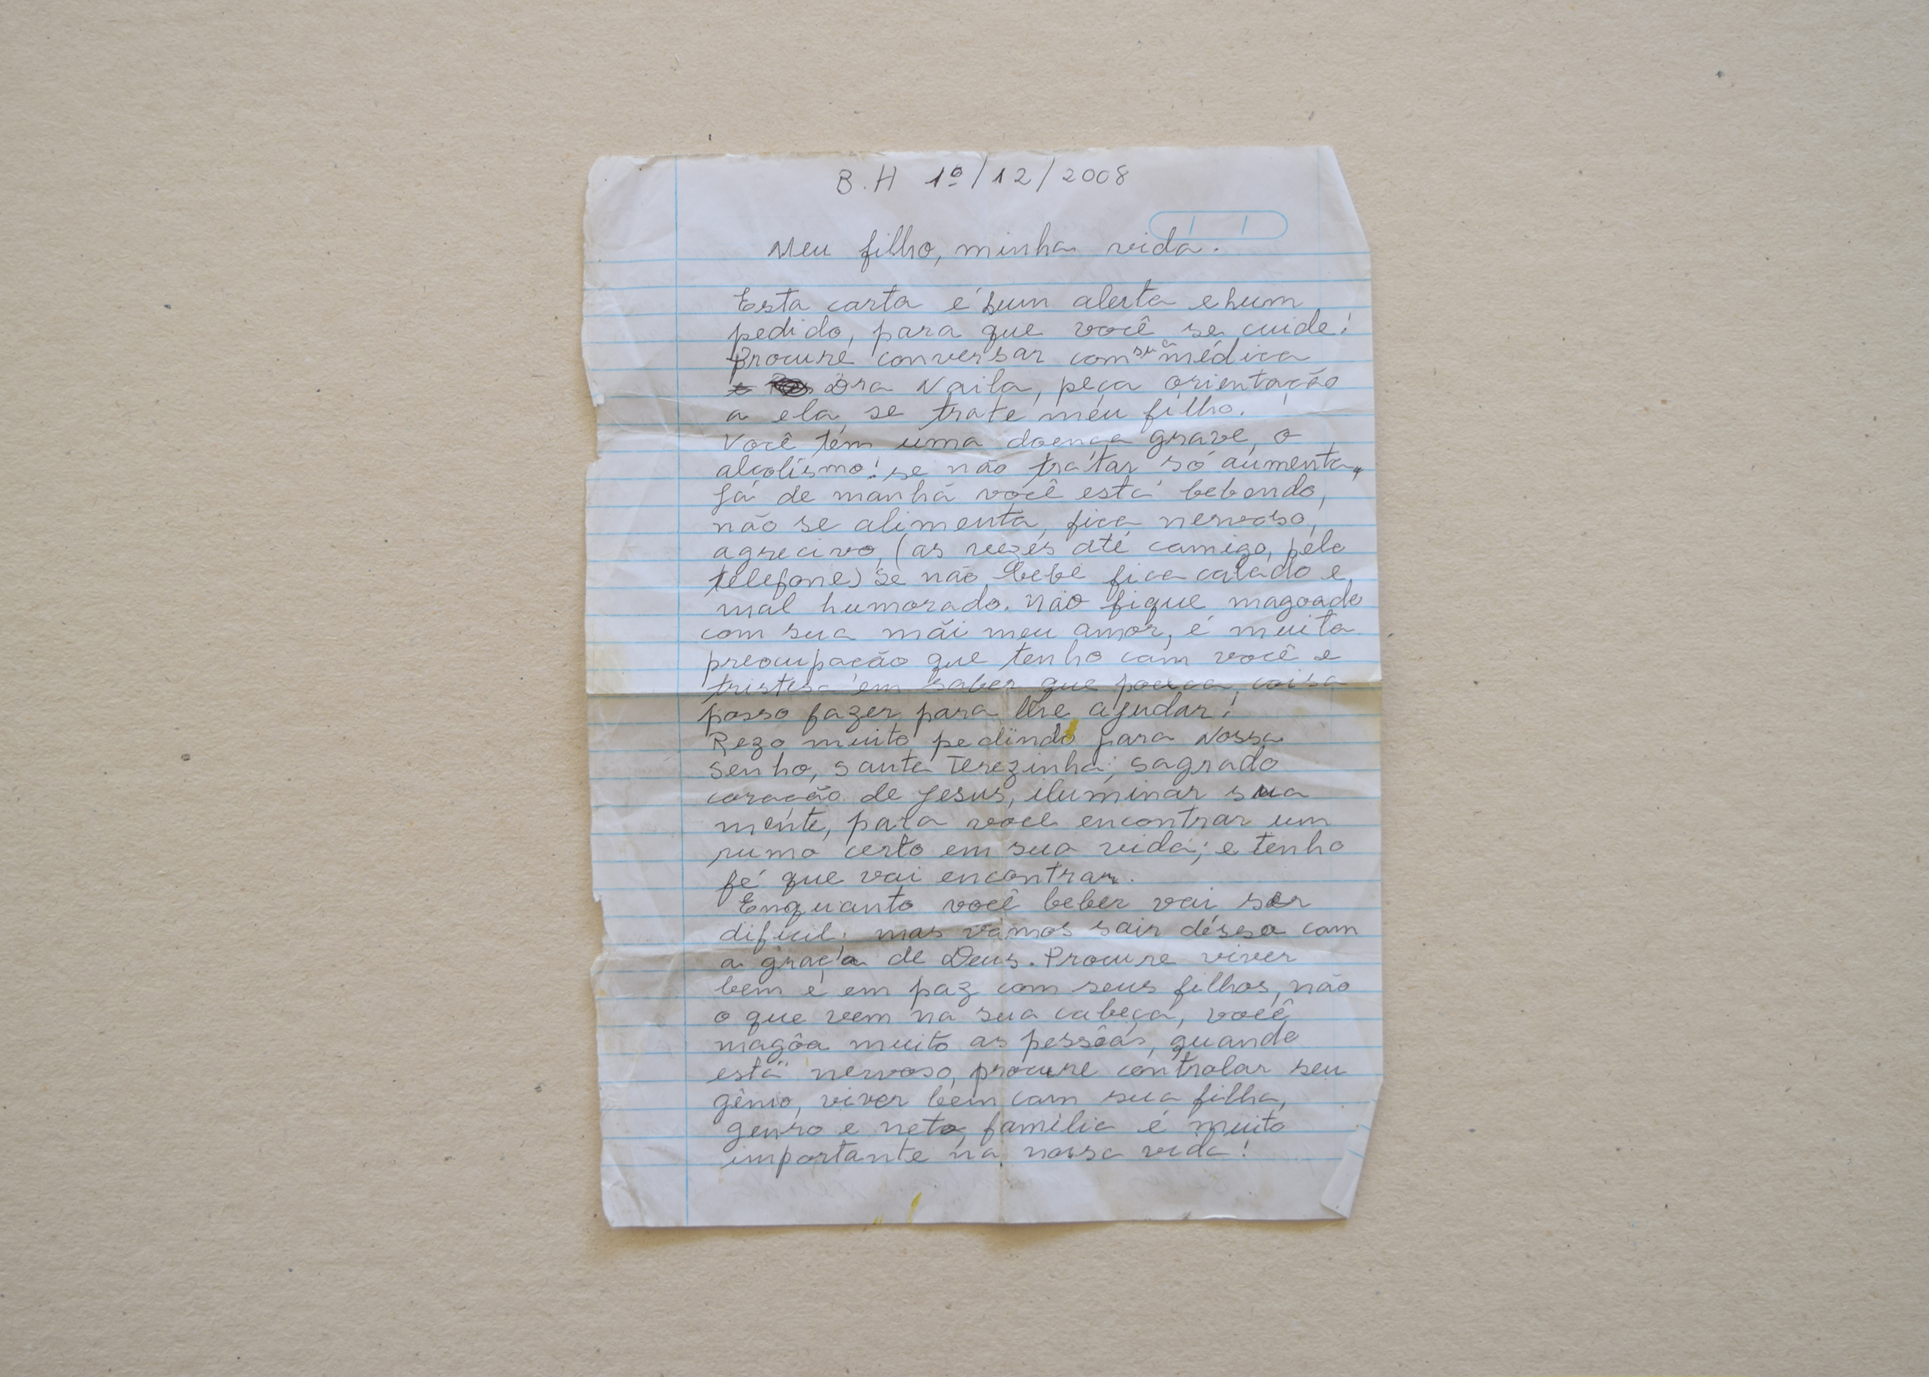 B.H 1º/12/2008
Meu filho, minha vida.
Esta carta é hum alerta e hum
pedido, para que você se cuide!
Procure conversar com sua médica
Dra Naila, peça orientação
a ela, se trate meu filho.
Você têm uma doença grave, o
alcolismo! se não tratar só aumenta,
Já de manhã você está bebendo,
não se alimenta, fica nervoso,
agrecivo, (as vezes até comigo, pelo
telefone) se não bebe fica calado e
mal humorado. Não fique magoado
com sua mãi meu amor, é muita
preocupação que tenho com você e
tristesa em saber que pouca coisa
posso fazer para lhe ajudar!
Rezo muito pedindo para Nossa
Senho, Santa Terezinha, sagrado
coração de Jesus, iluminar sua
mente, para você encontrar um
rumo certo em sua vida; e tenho
fé que vai encontrar.
Enquanto você beber vai ser
difícil, mas vamos sair dessa com
a graça de Deus. Procure viver
bem e em paz com seus filhos, não
o que vem na sua cabeça, você
magôa muito as pessôas, quando
está nervoso, procure controlar seu
gênio, viver bem com sua filha,
genro e neto, família é muito
importante na nossa vida!